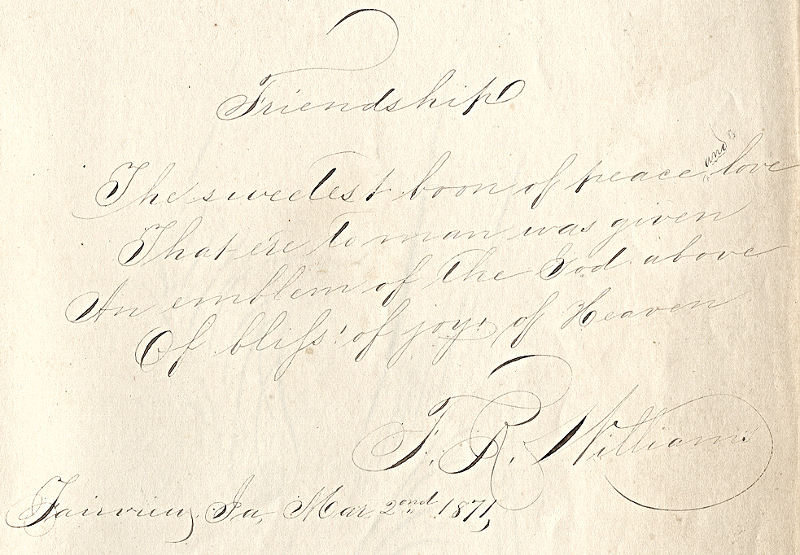 Friendship
The sweetest boon of peace and love
That ere to man was given
An emblem of the God above
Of bliss! of joy! of Heaven
F. R. Williams
Fairview, Ia, Mar 2nd 1871,